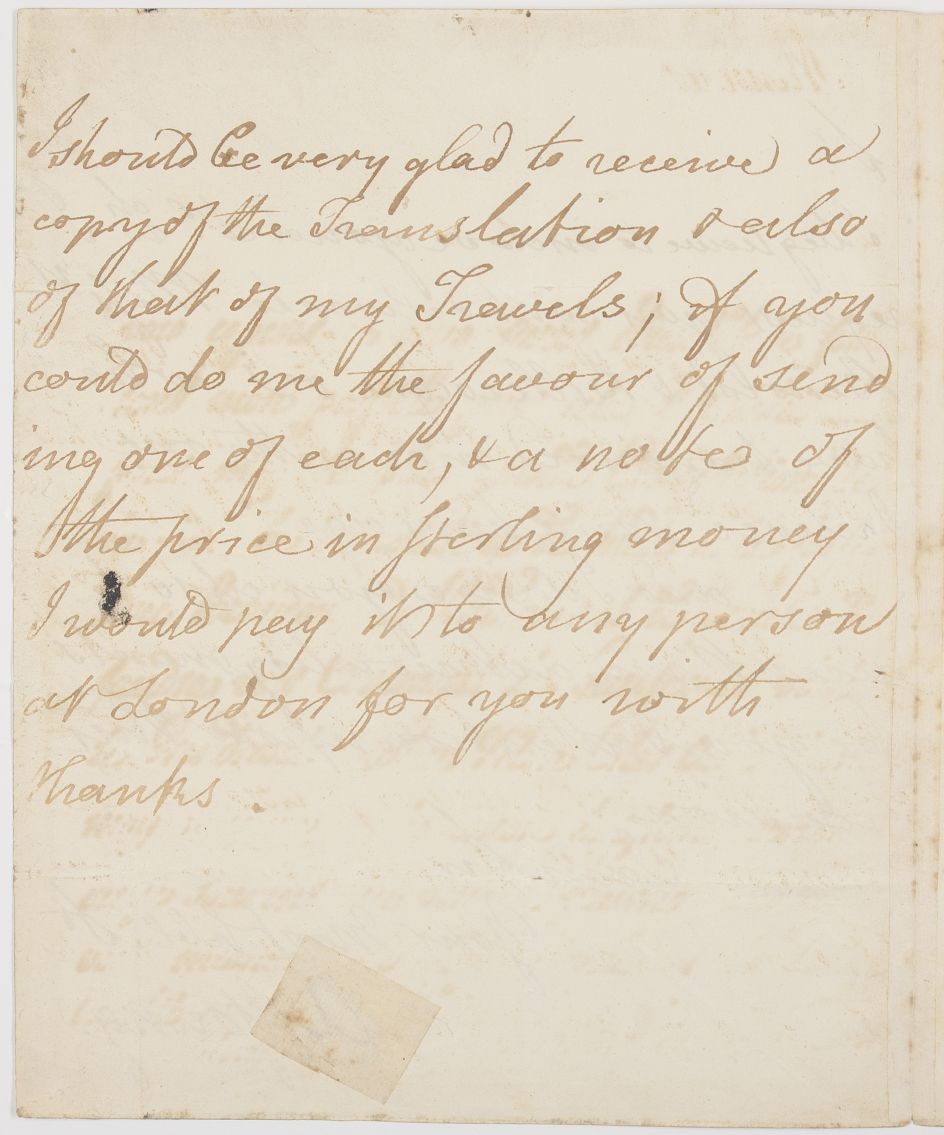 I should be very glad to receive a
copy of the Translation & also
of that of my Travels; if you
could do me the favour of send
ing one of each, & a note of
the price in sterling money
I would pay it to any person
at London for you with
thanks.